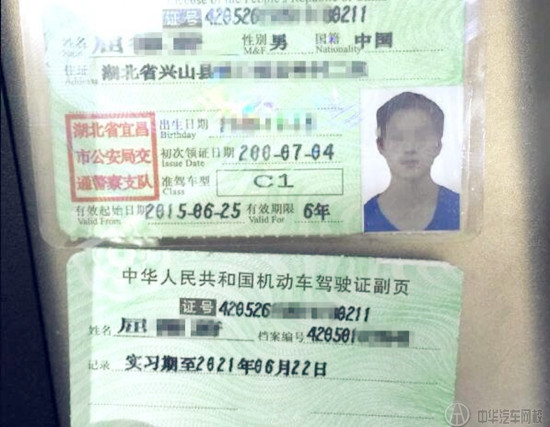 证号 420526 0211
姓名 屈 性别 男 国籍 中国
M&F Nationality
住址 湖北省兴山县
湖北省宜昌
市公安局交
通警察支队
出生日期
Birthday
初次领证日期 200-07-04
Issue Date
准驾车型 C1
Class
有效起始日期 2015-06-25 有效期限 6年
Valid From Valid For
中华人民共和国机动车驾驶证副页
证号 420526 0211
姓名 屈 档案编号 420501
记录 实习期至2021年06月22日
中华汽车网校